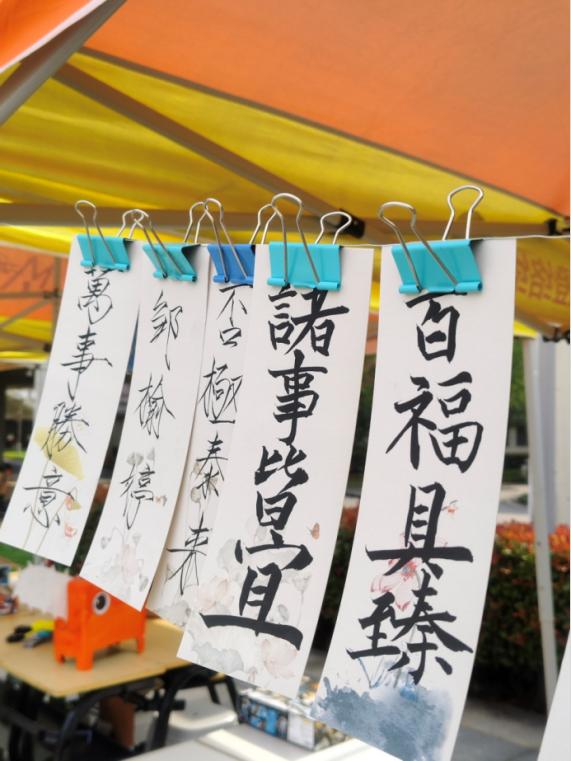 百福具臻
諸事皆宜
否極泰來
萬事勝意